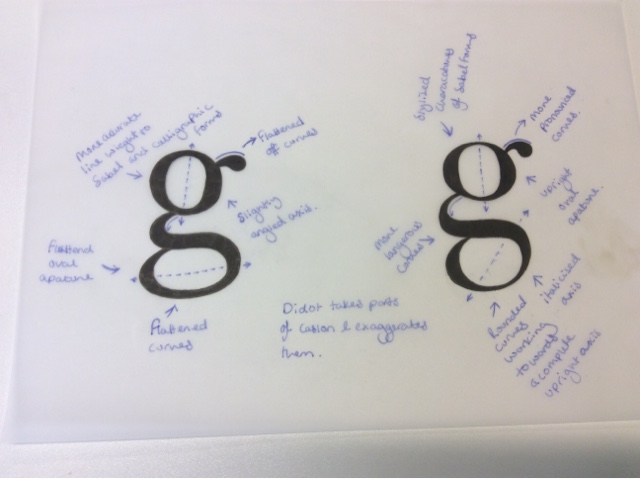 More accurate
line weight to
Sabel and Calligraphic
forms
Flattened
of curves
g
Slightly
angled axis.
Flattened
oval
apature
Flattened
curves
Didot takes parts
of Caslon & exaggerates
them.
Stylized
characature
of Sabel forms
More
Pronounced
curves.
g
upright
oval
apature.
More
curves
italicised
axis
Rounded
curves
working
towards
a complete
upright axis